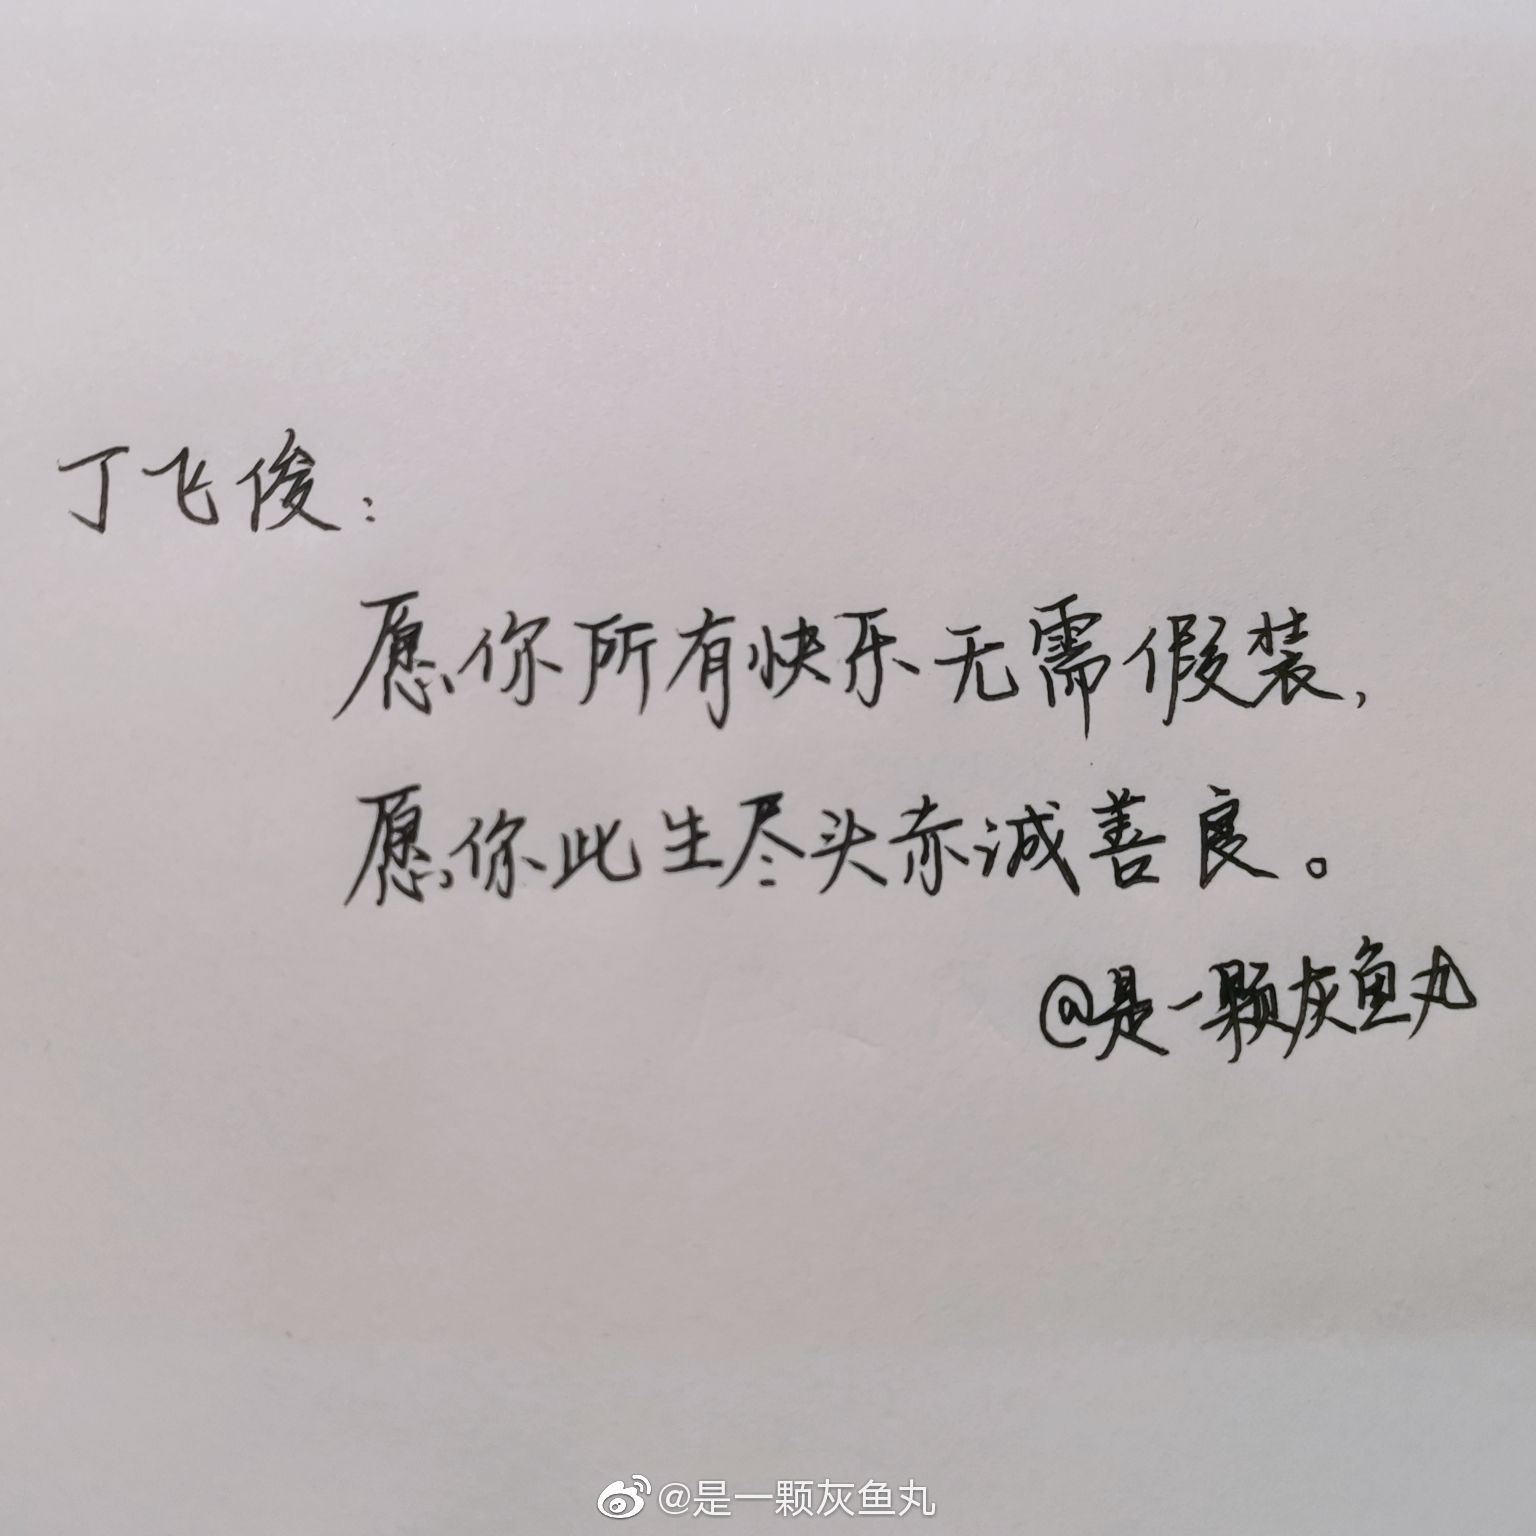 丁飞俊：
愿你所有快乐无需假装，
愿你此生尽头赤诚善良。
@是一颗灰鱼丸
@是一颗灰鱼丸